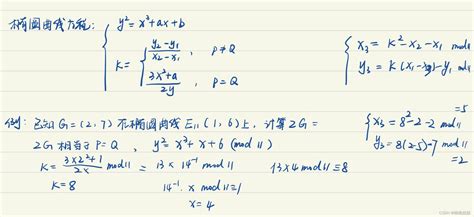 椭圆曲线方程: { y² = x³+ax+b
K = { (y₂-y₁)/(x₂-x₁) , P≠Q
(3x²+a)/(2y) , P=Q
{ x₃ = K²-x₂-x₁ mod
y₃ = K(x₁-x₃)-y₁ mod
例: 已知G=(2,7) 在椭圆曲线E₁₁(1,6)上, 计算2G=
2G 相当于 P=Q , y²=x³+x+6 (mod 11)
K = (3×2²+1)/(2×) mod 11 = 13×14⁻¹ mod 11
K=8
14⁻¹·x mod 11=1
x=4
13×4 mod 11≡8
{ x₃=8²-2-2 mod =5
y₃=8(2-5)-7 mod 11 =2